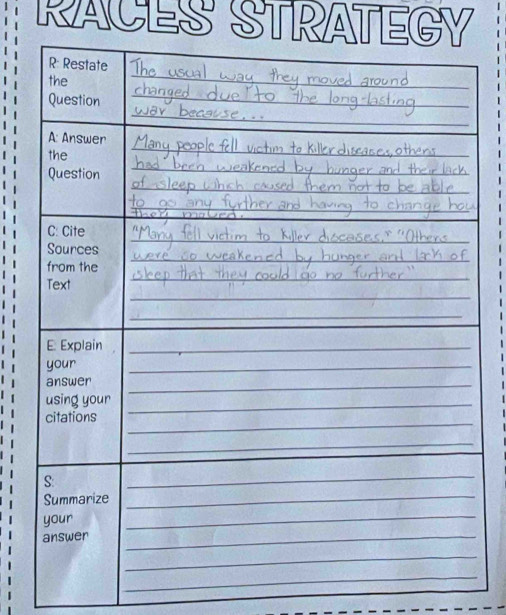 RACES STRATEGY
R: Restate
the
Question
The usual way they moved around
changed due to the long-lasting
war because...
A: Answer
the
Question
Many people fell victim to killer diseases, others
had been weakened by hunger and their lack
of sleep which caused them not to be able
to go any further and having to change how
they moved.
C: Cite
Sources
from the
Text
"Many fell victim to killer diseases." "Others
were so weakened by hunger and lack of
sleep that they could go no further"
E: Explain
your
answer
using your
citations
S:
Summarize
your
answer